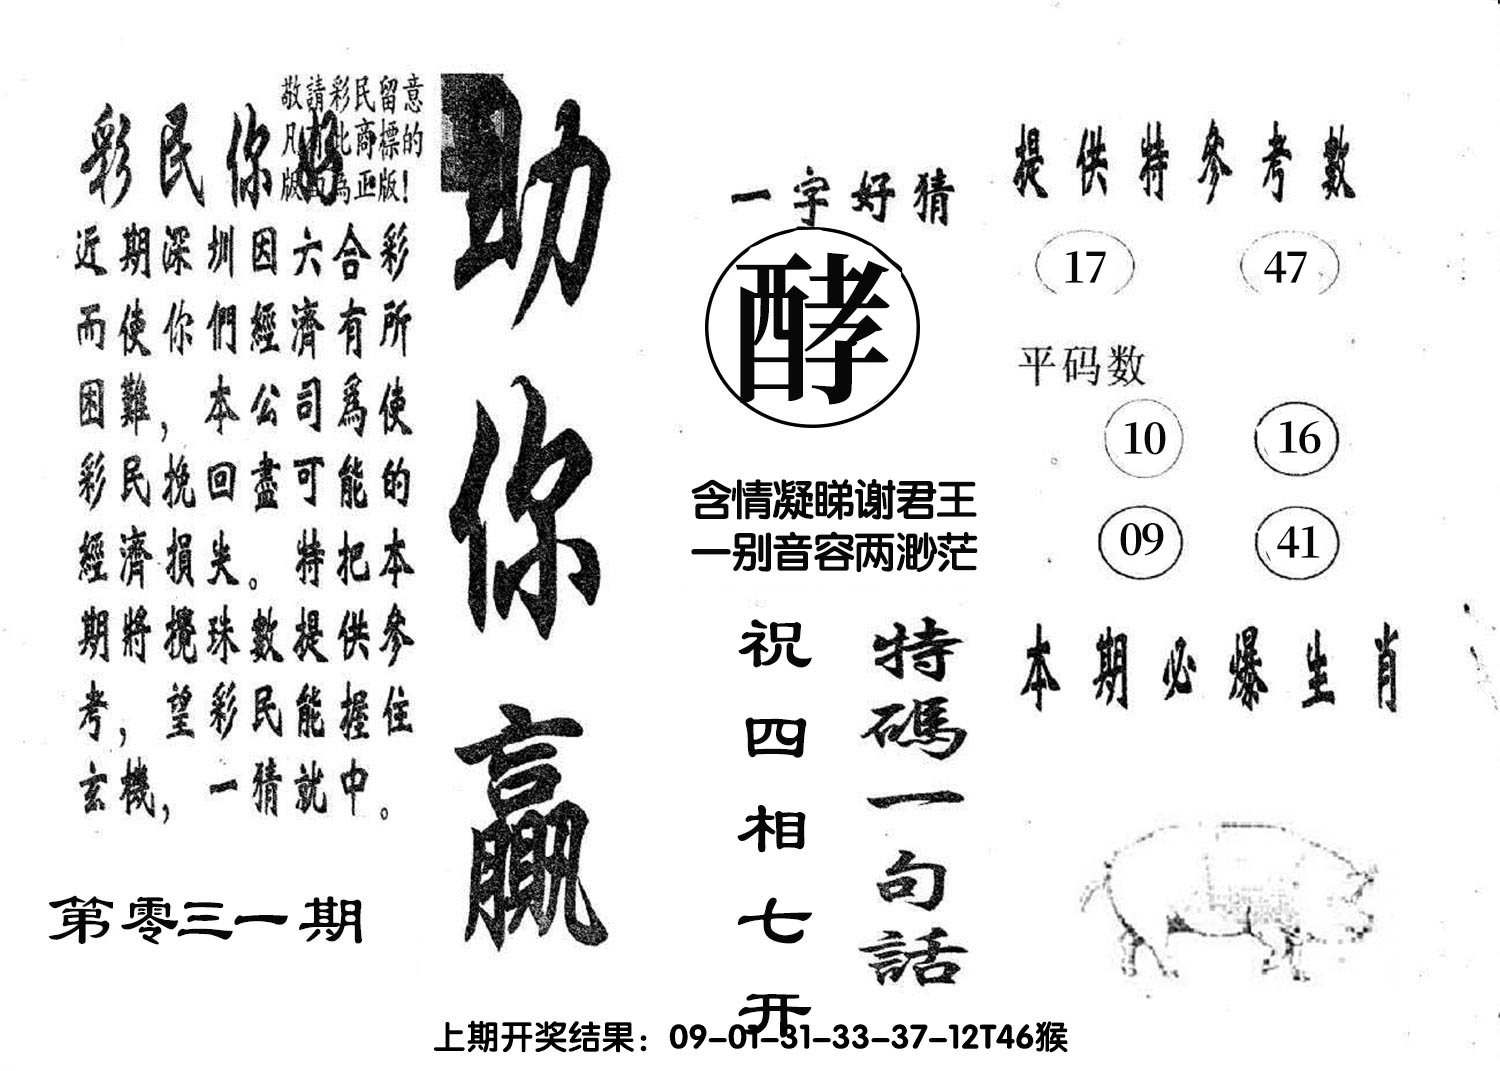 敬請彩民留意
凡有此商標的
版面為正版！
彩民你好
近期深圳因六合彩
而使你們經濟有所
困難，本公司爲使
彩民挽回盡可能的
經濟損失。特把本
期將攪珠數提供參
考，望彩民能握住
玄機，一猜就中。
第零三一期
助你贏
一字好猜
酵
含情凝睇谢君王
一别音容两渺茫
特碼一句話
祝四相七开
提供特參考數
17 47
平码数
10 16
09 41
本期必爆生肖
上期开奖结果：09-01-31-33-37-12T46猴